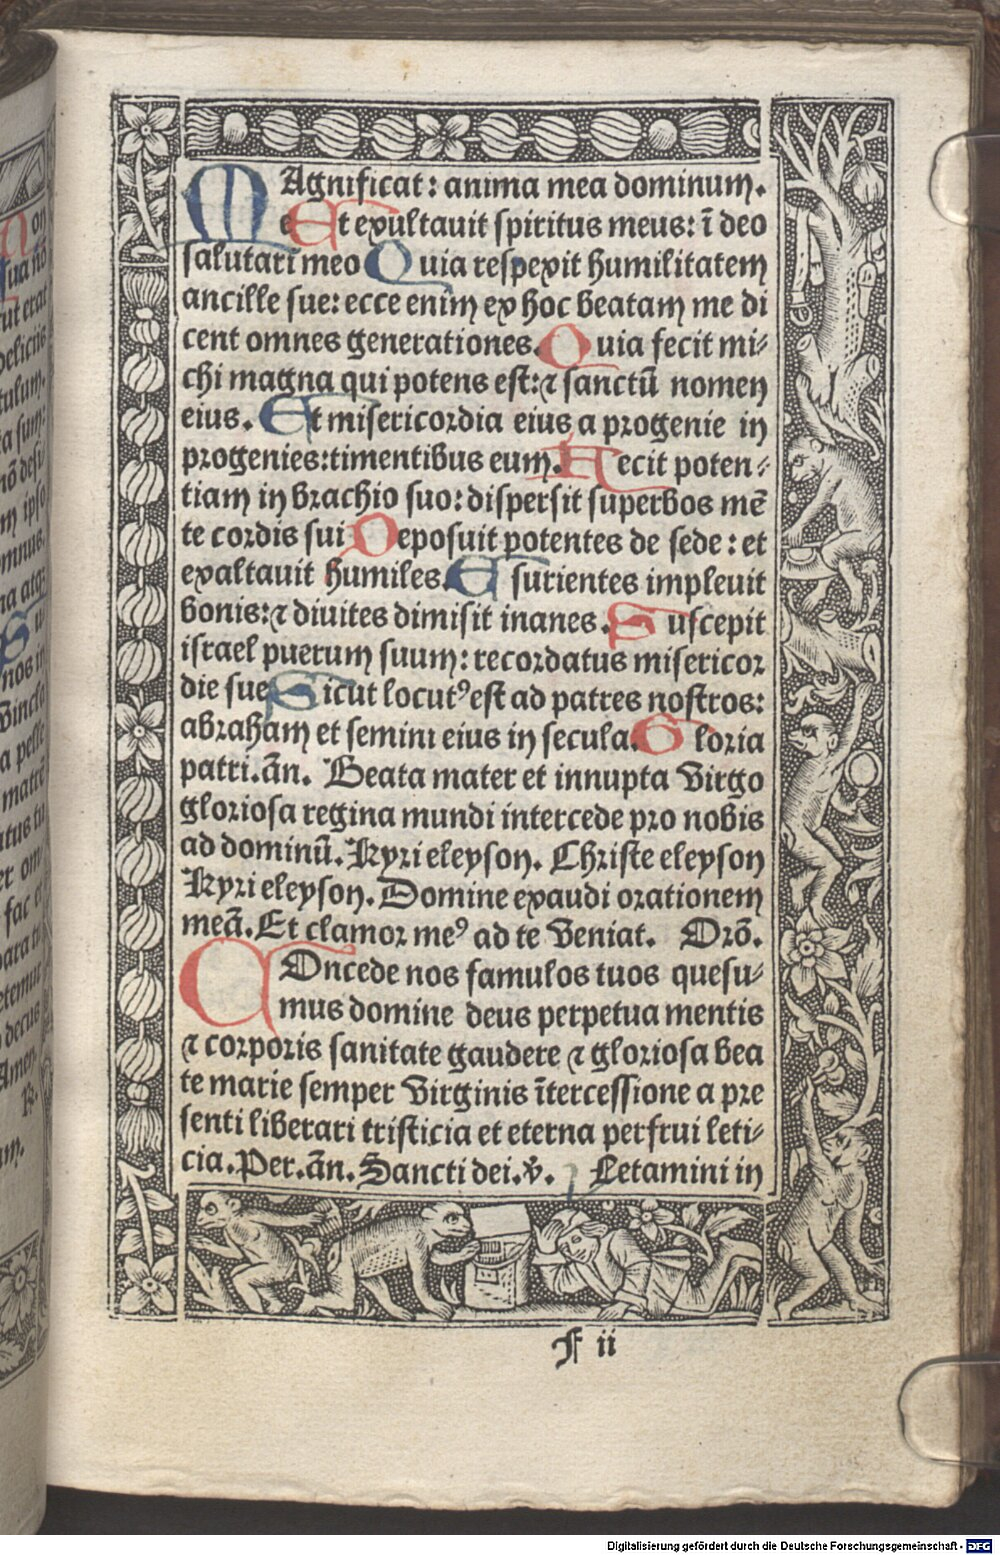 MAgnificat: anima mea dominum.
Et exultauit spiritus meus: ī deo
salutari meo Quia respexit humilitatem
ancille sue: ecce enim ex hoc beatam me di
cent omnes generationes. Quia fecit mi⸗
chi magna qui potens est: ⁊ sanctū nomen
eius. Et misericordia eius a progenie in
progenies: timentibus eum. Fecit poten⸗
tiam in brachio suo: dispersit superbos mē
te cordis sui Deposuit potentes de sede: et
exaltauit humiles. Esurientes impleuit
bonis: ⁊ diuites dimisit inanes. Suscepit
israel puerum suum: recordatus misericor
die sue Sicut locutꝰ est ad patres nostros:
abraham et semini eius in secula. Gloria
patri. ān. Beata mater et innupta virgo
gloriosa regina mundi intercede pro nobis
ad dominū. Kyri eleyson. Christe eleyson
Kyri eleyson. Domine exaudi orationem
meā. Et clamor meꝰ ad te veniat. Orō.
COncede nos famulos tuos quesu⸗
mus domine deus perpetua mentis
⁊ corporis sanitate gaudere ⁊ gloriosa bea
te marie semper virginis ītercessione a pre
senti liberari tristicia et eterna perfrui leti⸗
cia. Per. ān. Sancti dei. ℣. Letamini in
F ii
Digitalisierung gefördert durch die Deutsche Forschungsgemeinschaft - DFG